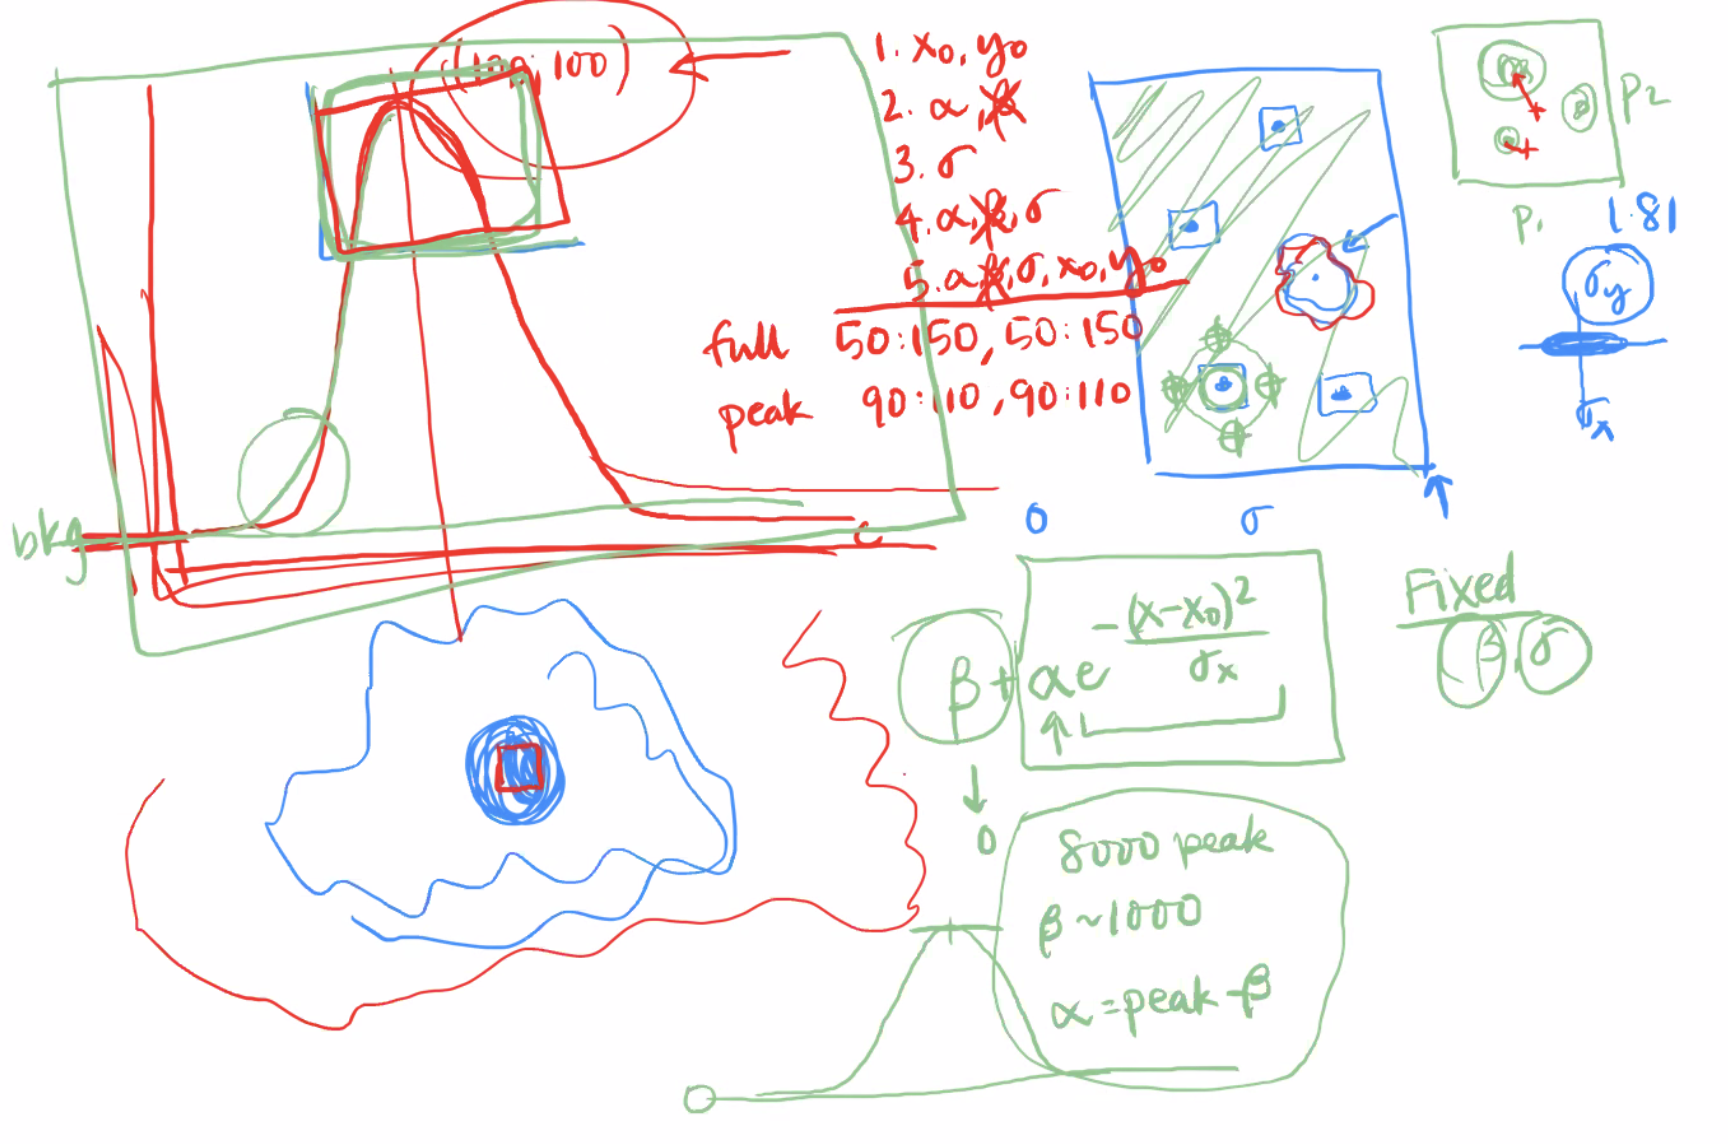 (100, 100)
1. x₀, y₀
2. α, β
3. σ
4. α, β, σ
5. α, β, σ, x₀, y₀
full 50:150, 50:150
peak 90:110, 90:110
bkg
c
P2
P1
1.81
σy
σx
0 σ
β + αe -(x-x₀)²
σx
Fixed
β, σ
0
8000 peak
β ~ 1000
α = peak - β